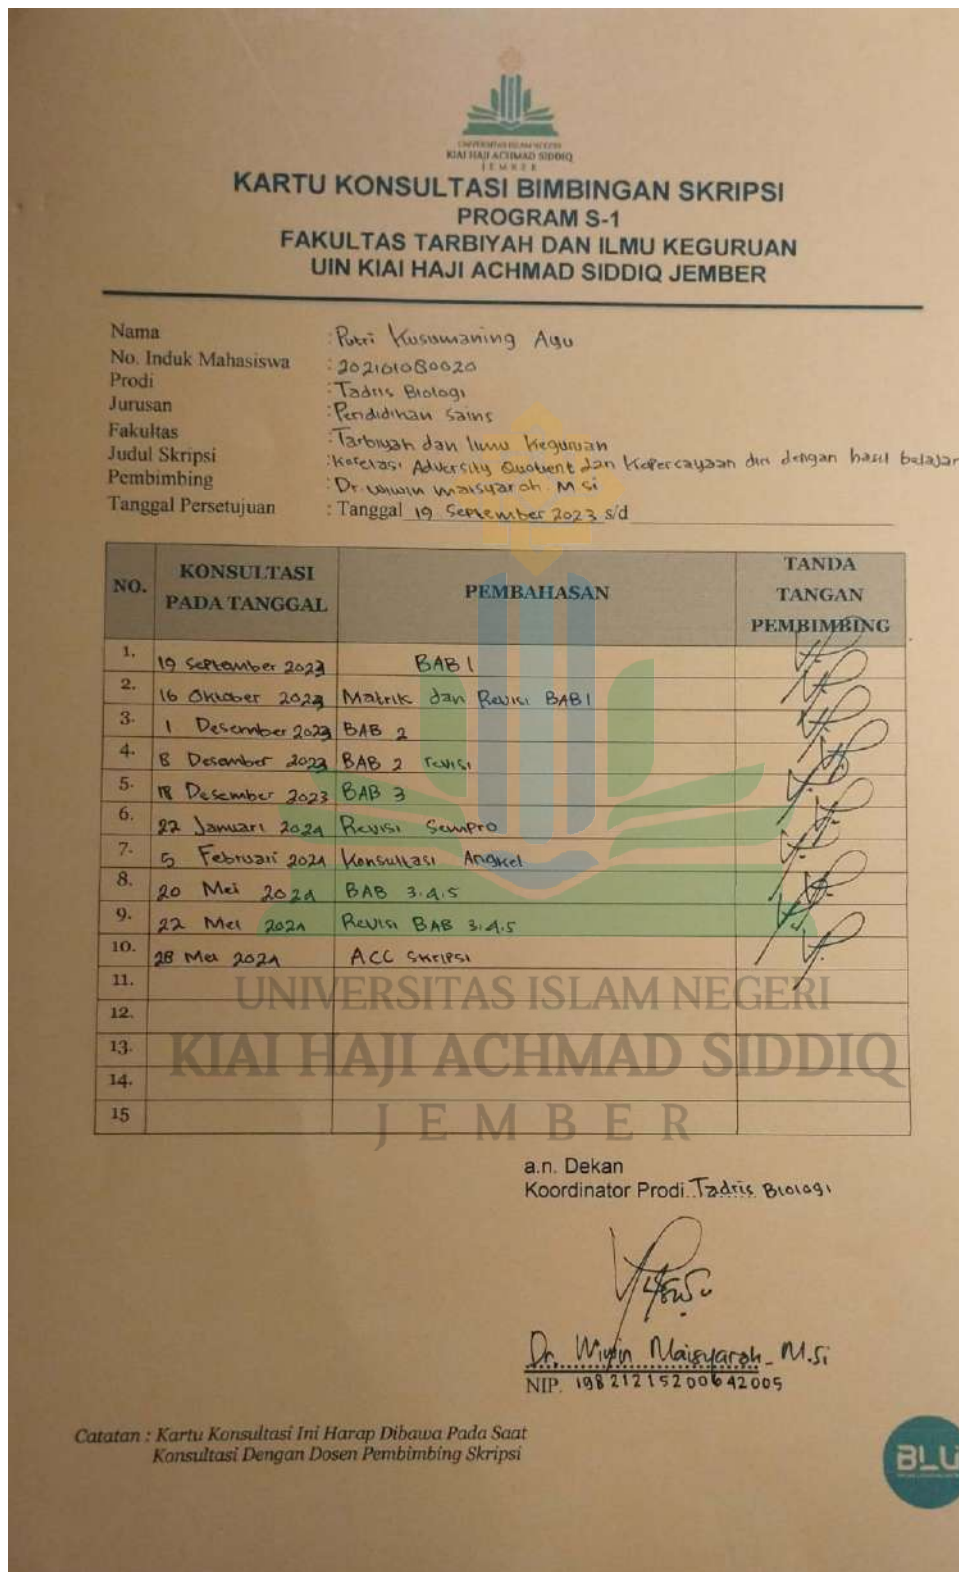 UNIVERSITAS ISLAM NEGERI
KIAI HAJI ACHMAD SIDDIQ
JEMBER
KARTU KONSULTASI BIMBINGAN SKRIPSI
PROGRAM S-1
FAKULTAS TARBIYAH DAN ILMU KEGURUAN
UIN KIAI HAJI ACHMAD SIDDIQ JEMBER
Nama : Putri Kusumaning Ayu
No. Induk Mahasiswa : 202101080020
Prodi : Tadris Biologi
Jurusan : Pendidikan Sains
Fakultas : Tarbiyah dan Ilmu Keguruan
Judul Skripsi : Korelasi Adversity Quotient dan Kepercayaan diri dengan hasil belajar
Pembimbing : Dr. Wiwin Maisyaroh. M.Si
Tanggal Persetujuan : Tanggal 19 September 2023 s/d
NO. KONSULTASI PADA TANGGAL PEMBAHASAN TANDA TANGAN PEMBIMBING
1. 19 September 2023 BAB 1
2. 16 Oktober 2023 Matrik dan Revisi BAB 1
3. 1 Desember 2023 BAB 2
4. 8 Desember 2023 BAB 2 revisi
5. 18 Desember 2023 BAB 3
6. 22 Januari 2024 Revisi Sempro
7. 5 Februari 2024 Konsultasi Angket
8. 20 Mei 2024 BAB 3.4.5
9. 22 Mei 2024 Revisi BAB 3.4.5
10. 28 Mei 2024 ACC Skripsi
11.
UNIVERSITAS ISLAM NEGERI
12.
13.
KIAI HAJI ACHMAD SIDDIQ
14.
15
JEMBER
a.n. Dekan
Koordinator Prodi Tadris Biologi
Dr. Wiwin Maisyaroh_ M.Si
NIP. 19821215200642005
Catatan : Kartu Konsultasi Ini Harap Dibawa Pada Saat
Konsultasi Dengan Dosen Pembimbing Skripsi
BLU